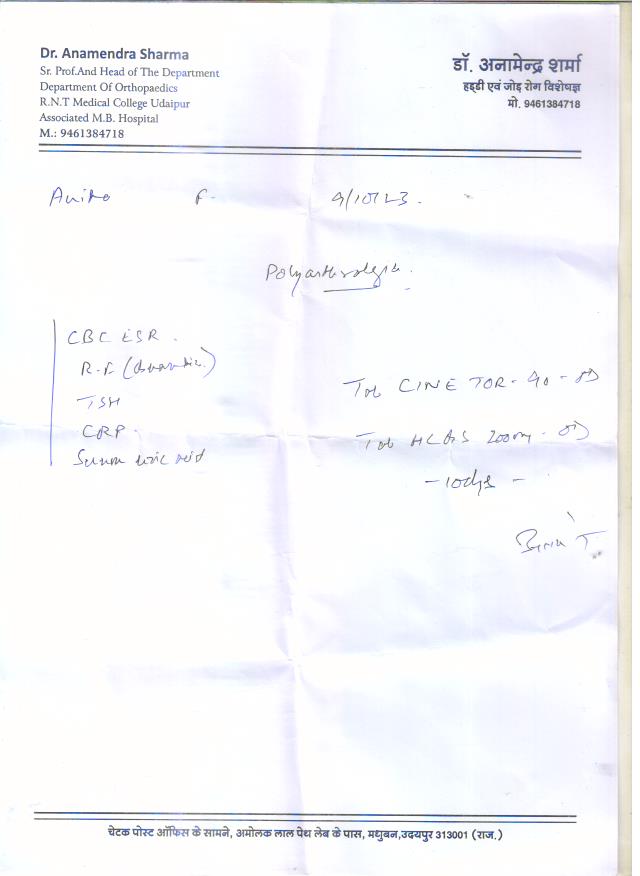 Dr. Anamendra Sharma
Sr. Prof.And Head of The Department
Department Of Orthopaedics
R.N.T Medical College Udaipur
Associated M.B. Hospital
M.: 9461384718
डॉ. अनामेन्द्र शर्मा
हड्डी एवं जोड़ रोग विशेषज्ञ
मो. 9461384718
Anita F- 9/10/23.
Polyarthralgia.
CBC ESR.
R.F. (Quantic.)
TSH
CRP.
Serum uric acid
Tab CINETOR-90-OD
Tab HCQS 200mg-OD
-10dys-
चेटक पोस्ट ऑफिस के सामने, अमोलक लाल पेथ लेब के पास, मधुबन,उदयपुर 313001 (राज.)